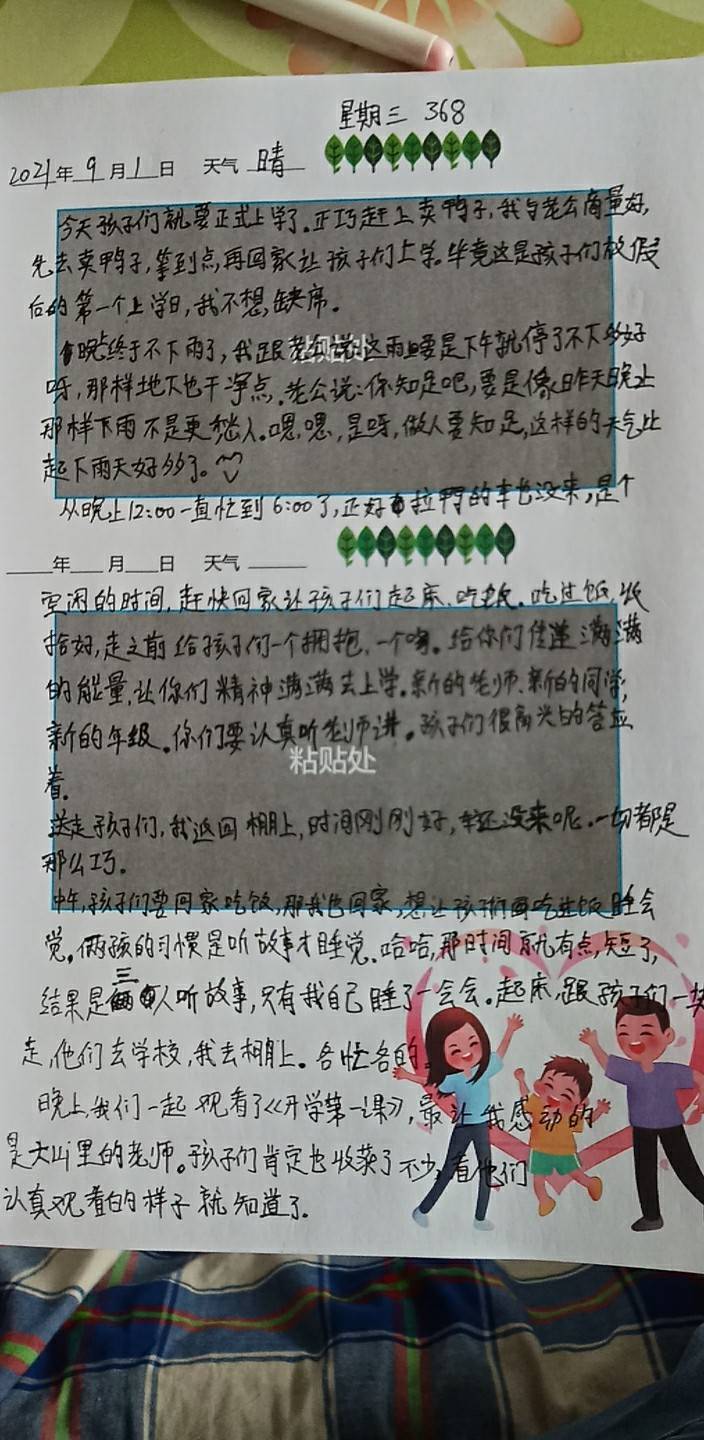 星期三 368
2021年9月1日 天气 晴
今天孩子们就要正式上学了.正巧赶上卖鸭子,我与老公商量好,
先去卖鸭子,拿到点,再回家让孩子们上学。毕竟这是孩子们放假
后的第一个上学日,我不想缺席。
晚终于不下雨了,我跟老公说这雨要是下午就停了不下多好
粘贴处
呀,那样地下也干净点.老公说:你知足吧,要是像昨天晚上
那样下雨不是更愁人.嗯,嗯,是呀,做人要知足,这样的天气比
起下雨天好多了。
从晚上12:00一直忙到6:00了,正好拉鸭的车也没来,是个
年 月 日 天气
空闲的时间,赶快回家让孩子们起床、吃饭.吃过饭,收
拾好,走之前给孩子们一个拥抱,一个吻。给你们传递满满
的能量,让你们精神满满去上学.新的老师、新的同学,
新的年级。你们要认真听老师讲。孩子们很高兴的答应
粘贴处
着.
送走孩子们,我返回棚上,时间刚刚好,车还没来呢.一切都是
那么巧.
中午,孩子们要回家吃饭,那我也回家,想让孩子们吃过饭睡会
觉。俩孩的习惯是听故事才睡觉.哈哈,那时间就有点短了,
结果是三人听故事,只有我自己睡了一会会.起床,跟孩子们一块
走,他们去学校,我去棚上。各忙各的.
晚上,我们一起观看了《开学第一课》,最让我感动的
是大山里的老师。孩子们肯定也收获了不少,看他们
认真观看的样子就知道了.